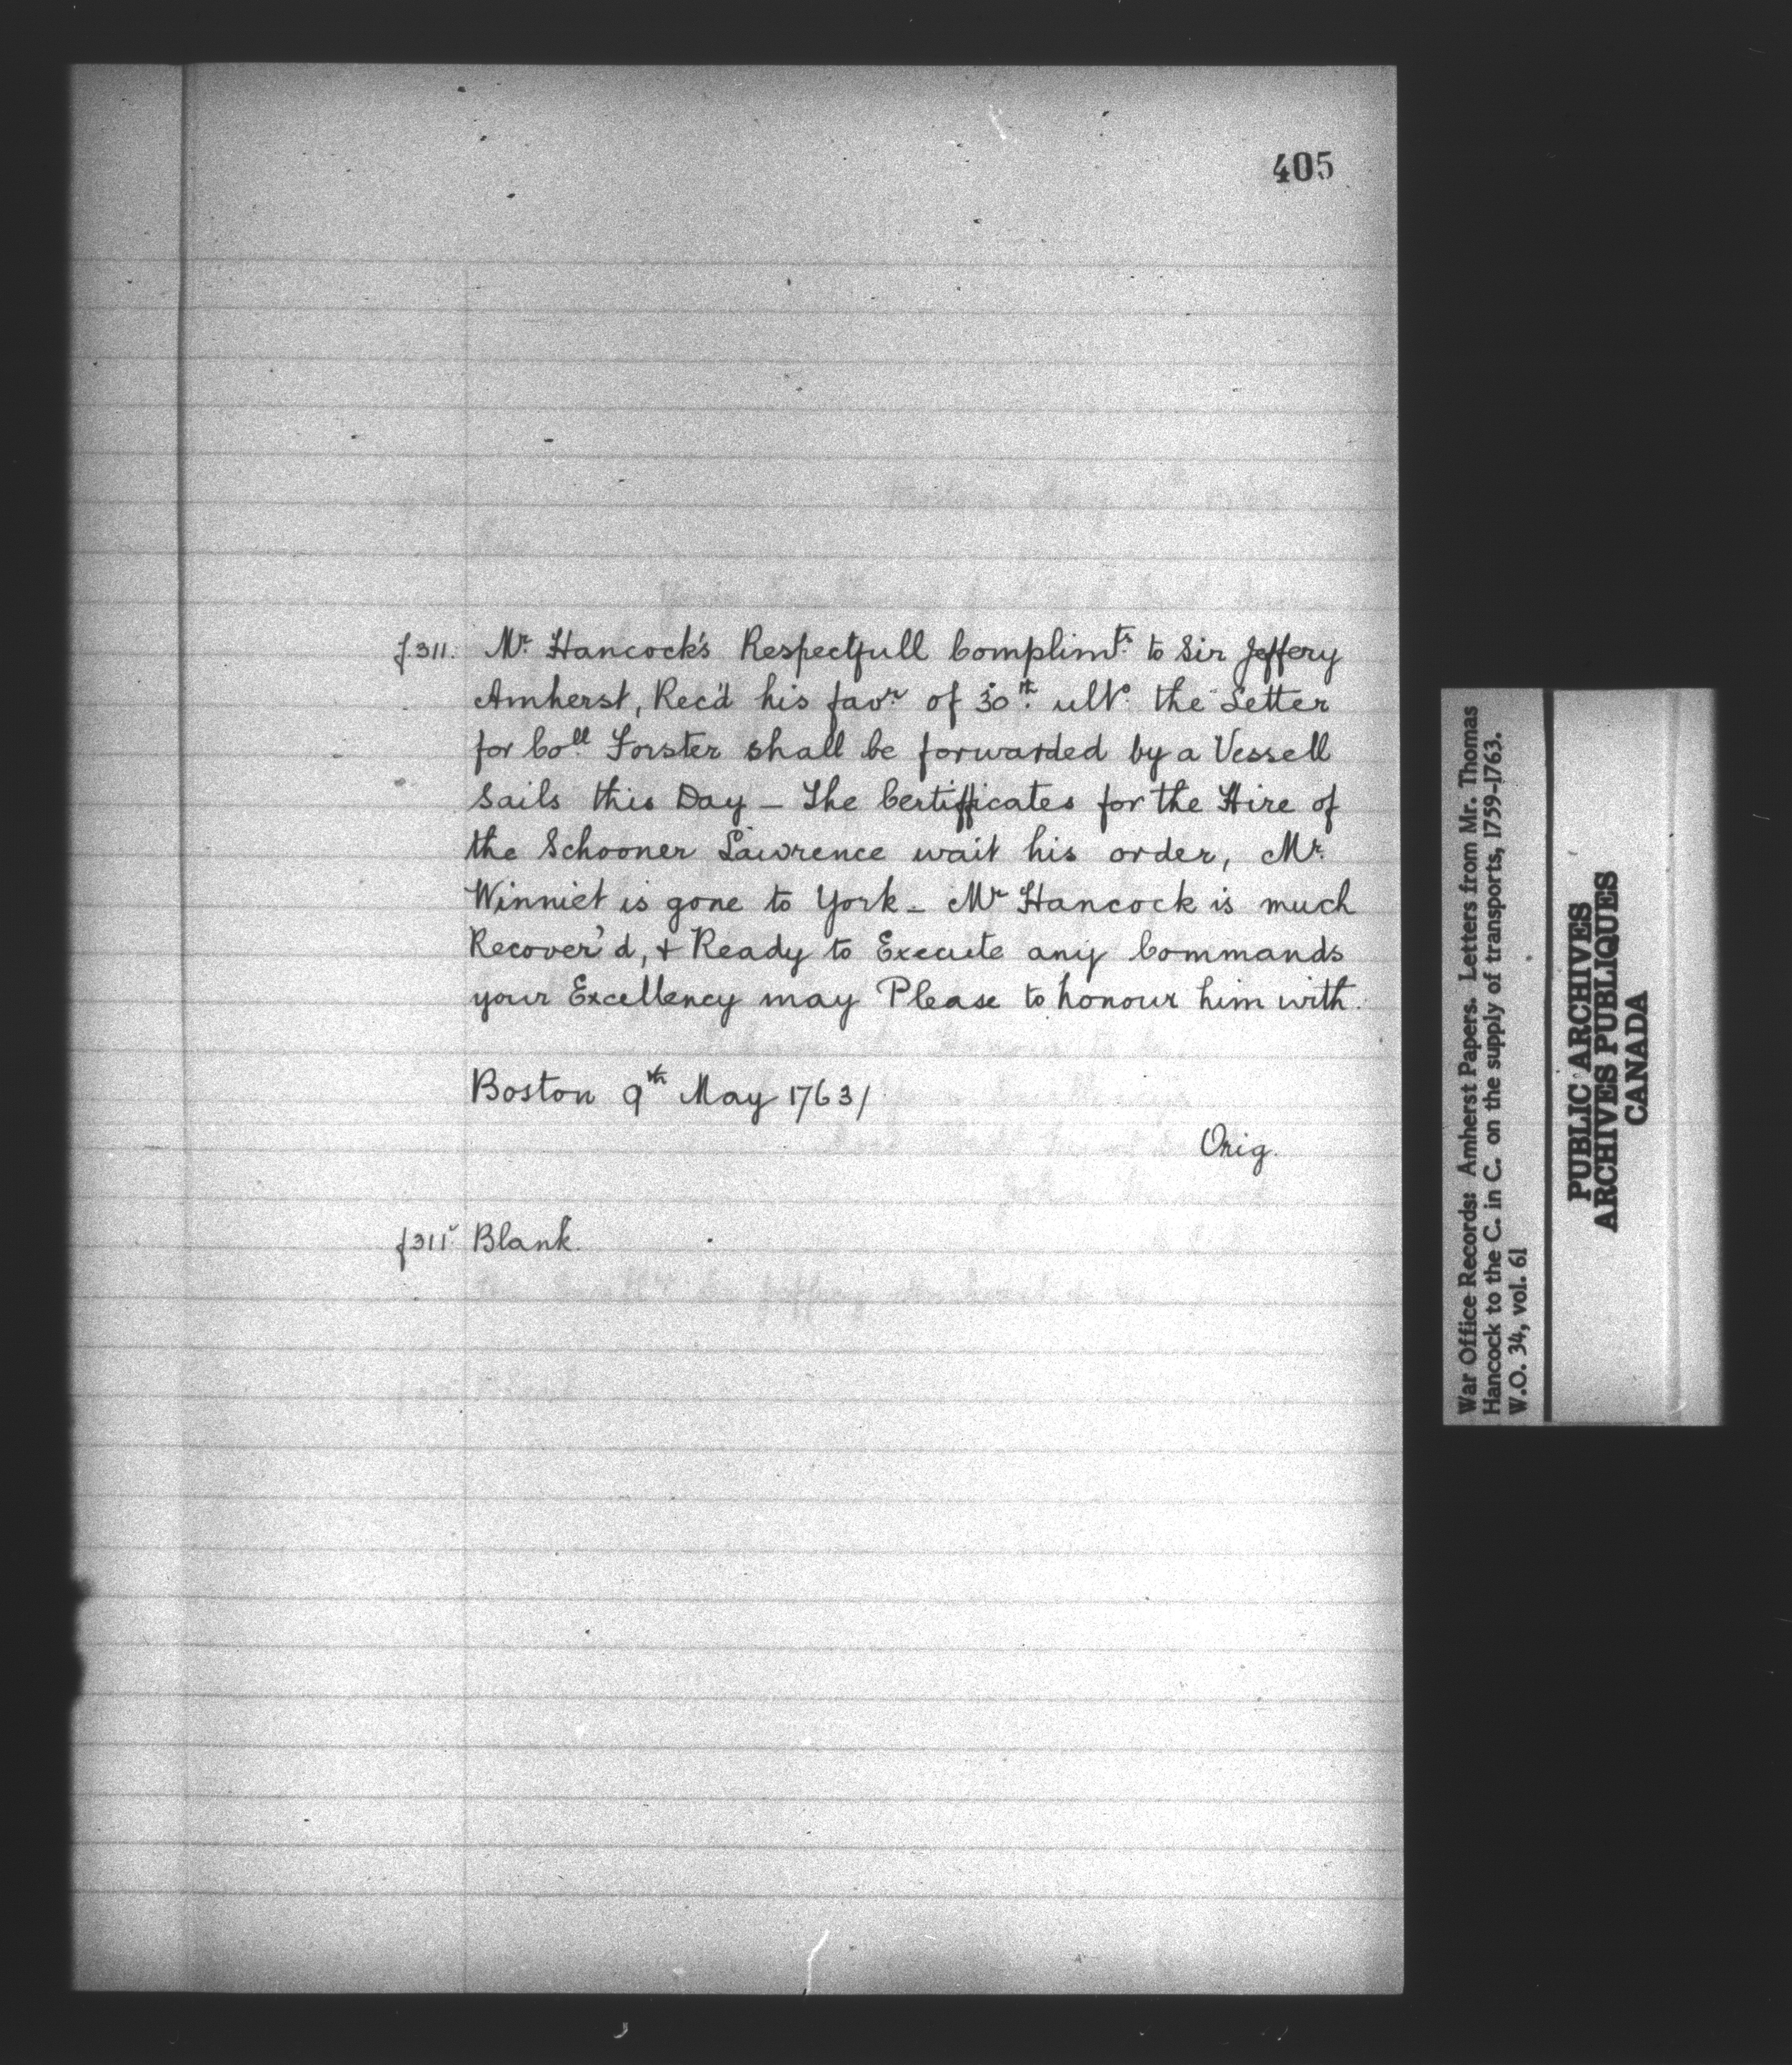 405
f.311. Mr. Hancock's Respectfull Complimts. to Sir Jeffery
Amherst, Rec'd his favr. of 30th. ulto. the Letter
for Coll Forster shall be forwarded by a Vessell
Sails this Day – The Certifficates for the Hire of
the Schooner Lawrence wait his order, Mr.
Winniet is gone to York – Mr Hancock is much
Recover'd, & Ready to Execute any Commands
your Excellency may Please to honour him with.
Boston 9th May 1763/
Orig.
f311v Blank.
War Office Records: Amherst Papers. Letters from Mr. Thomas
Hancock to the C. in C. on the supply of transports, 1759-1763.
W.O. 34, vol. 61
PUBLIC ARCHIVES
ARCHIVES PUBLIQUES
CANADA